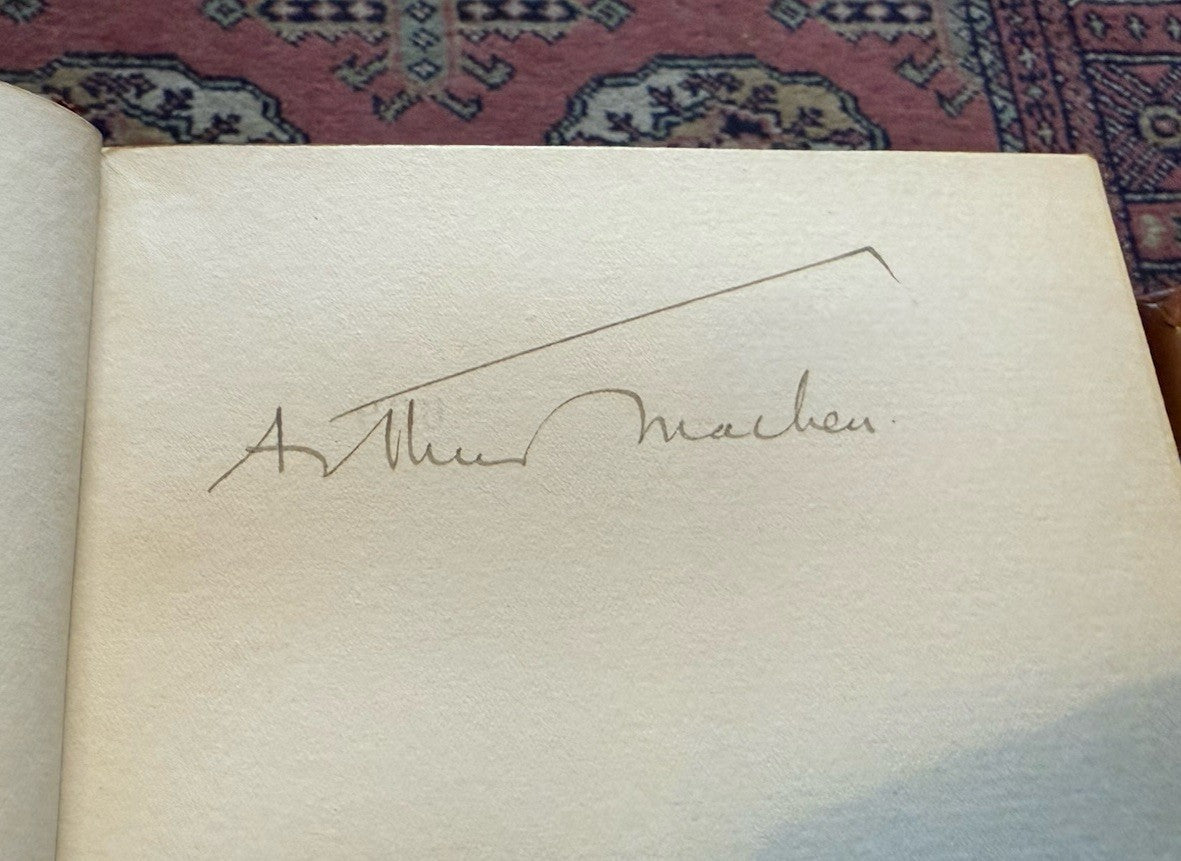 Arthur Machen.